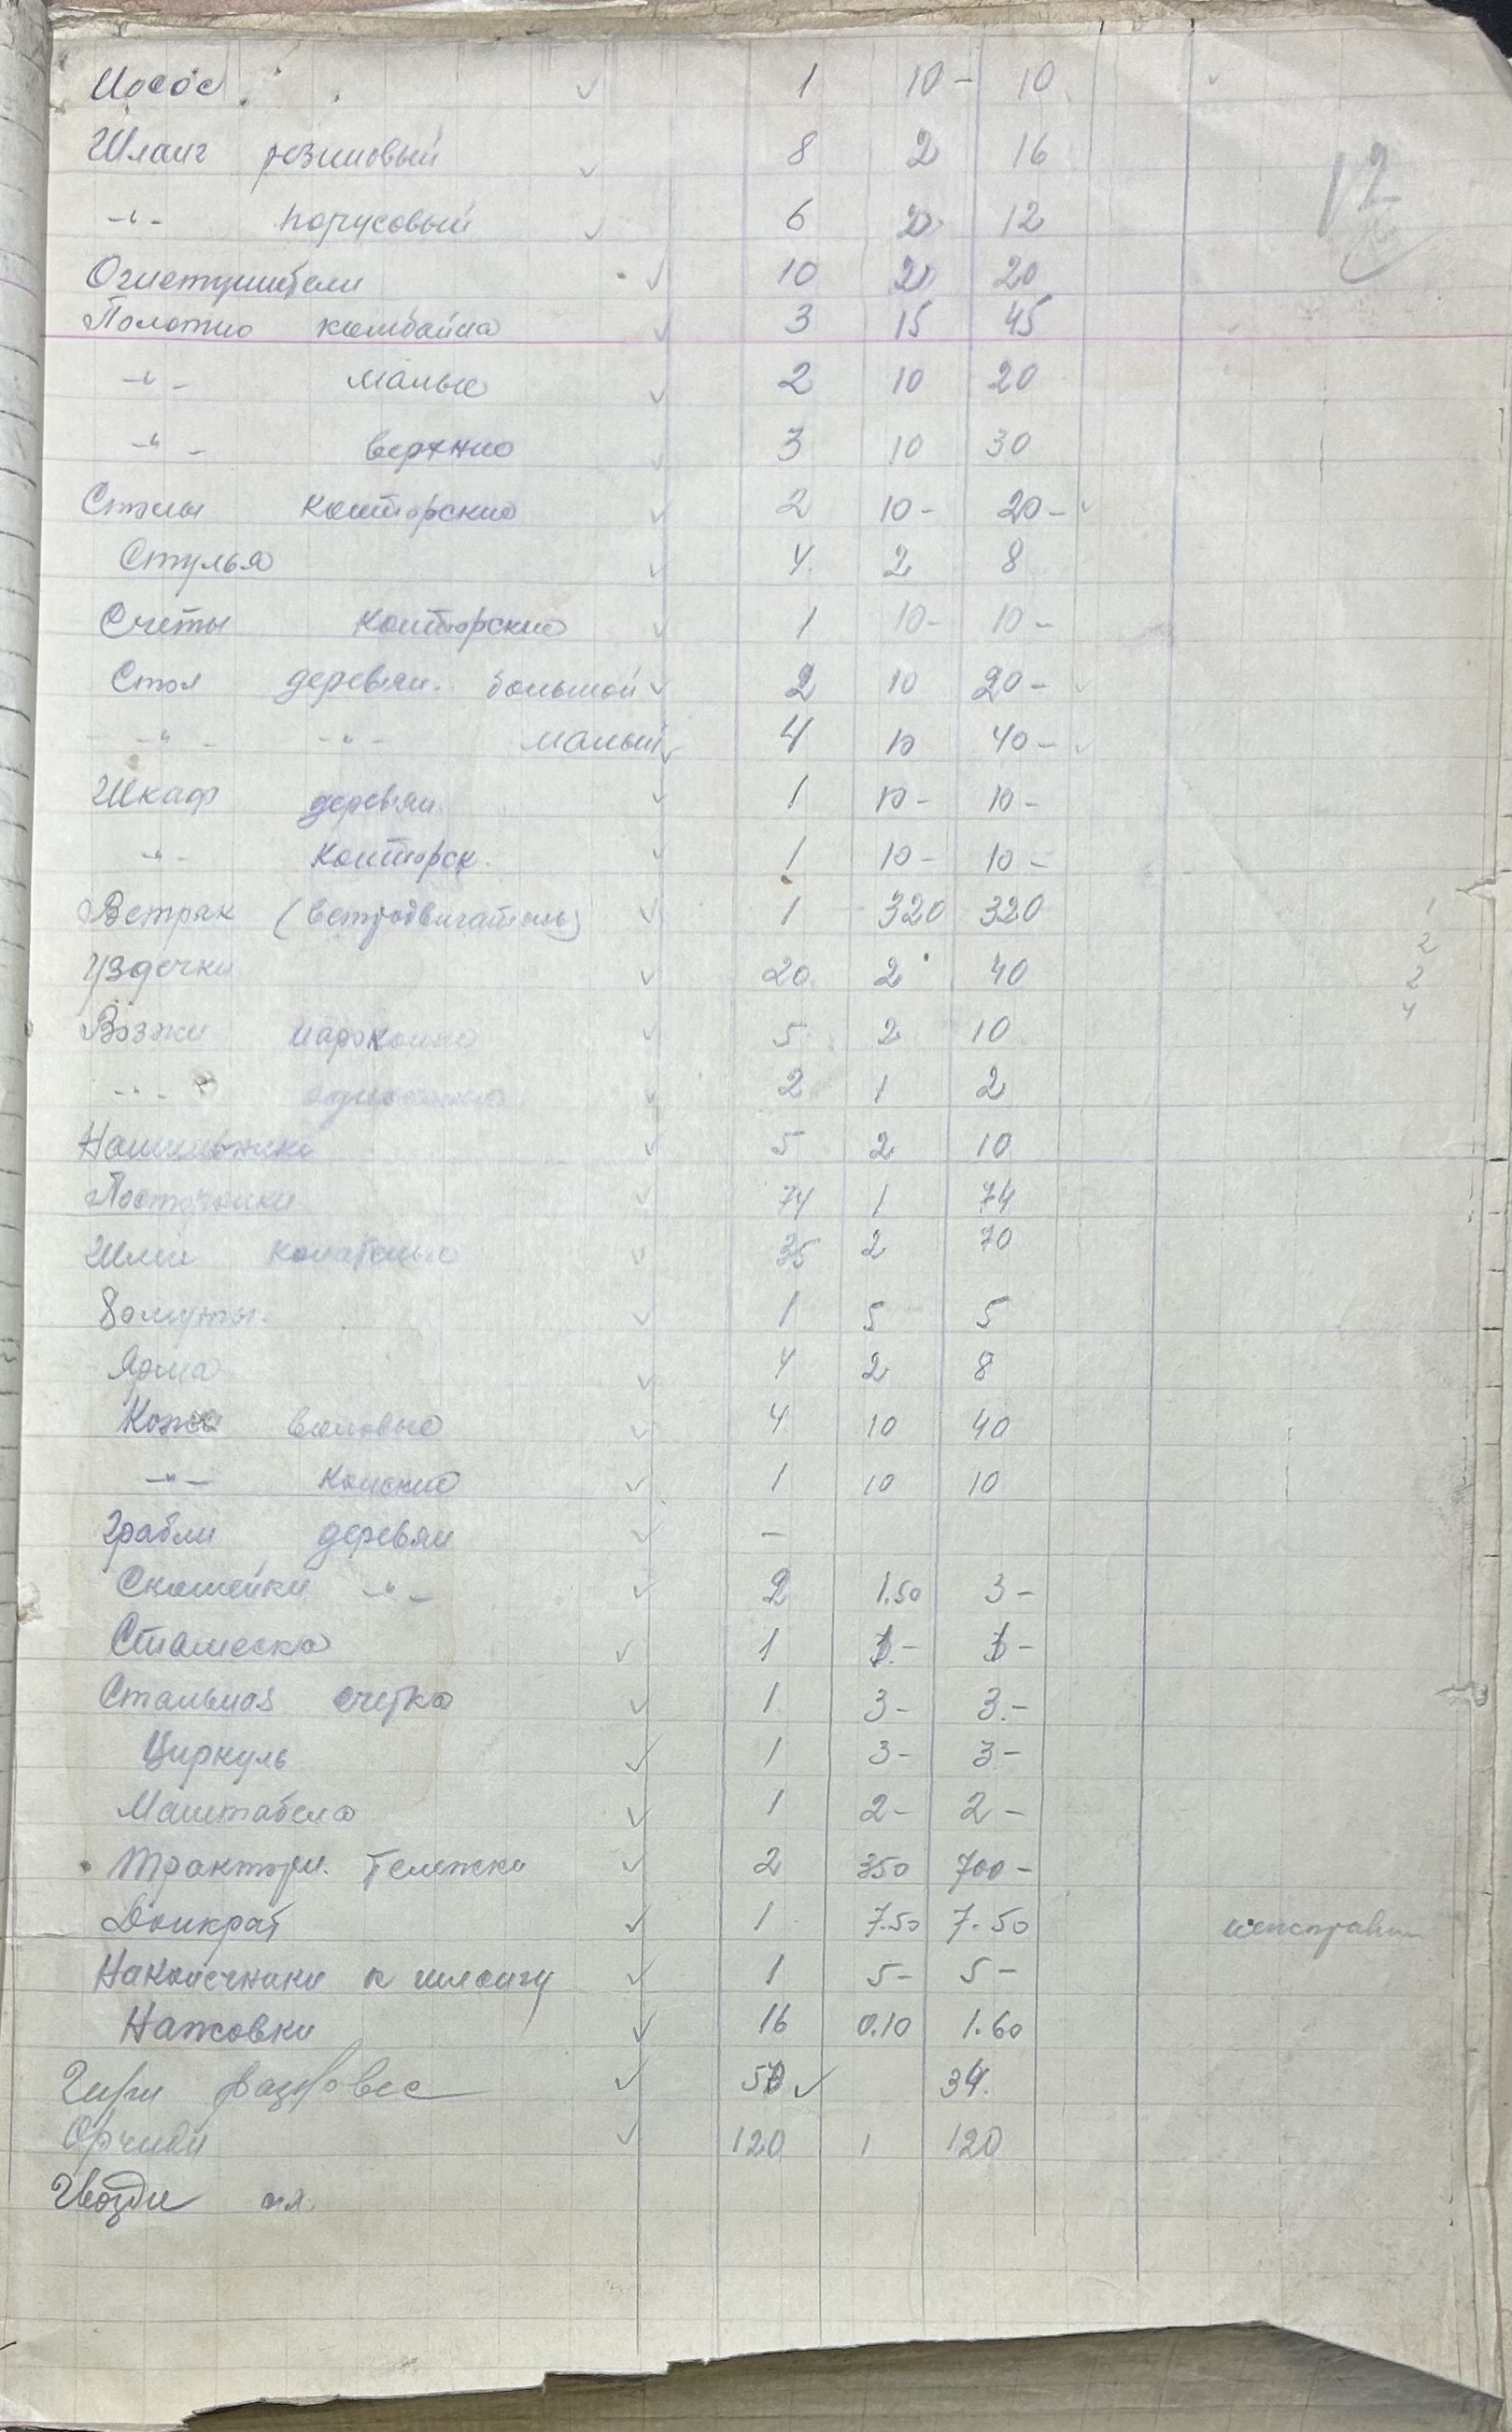 Насос ✓ 1 10- 10
Шланг резиновый ✓ 8 2 16
12
-"- парусовый ✓ 6 2 12
Огнетушители ✓ 10 2 20
Полотно комбайна ✓ 3 15 45
-"- малые ✓ 2 10 20
-"- верхние ✓ 3 10 30
Столы конторские ✓ 2 10- 20-
Стулья ✓ 4 2 8
Счеты конторские ✓ 1 10- 10-
Стол деревян. большой ✓ 2 10 20-
-"- -"- малый ✓ 4 10 40-
Шкаф деревян. ✓ 1 10- 10-
-"- конторск. ✓ 1 10- 10-
Ветряк (ветродвигатель) ✓ 1 320 320
Уздечки ✓ 20 2 40
Возжи пароконные ✓ 5 2 10
-"- ✓ 2 1 2
Нашильники ✓ 5 2 10
Постромки ✓ 74 1 74
Шлеи ✓ 35 2 70
Хомуты ✓ 1 5 5
Ярма ✓ 4 2 8
Кожи воловые ✓ 4 10 40
-"- конские ✓ 1 10 10
Грабли деревян ✓ -
Скамейки -"- ✓ 2 1.50 3-
Стамеска ✓ 1
Стальная счетка ✓ 1 3- 3.-
Циркуль ✓ 1 3- 3-
✓ 1 2- 2-
Тракторн. тележки ✓ 2 350 700-
Домкрат ✓ 1 7.50 7.50
Наконечники к шлангу ✓ 1 5- 5-
Нажовки ✓ 16 0.10 1.60
Гири разновес ✓ ✓ 34.
Орчики ✓ 120 1 120
Гвозди